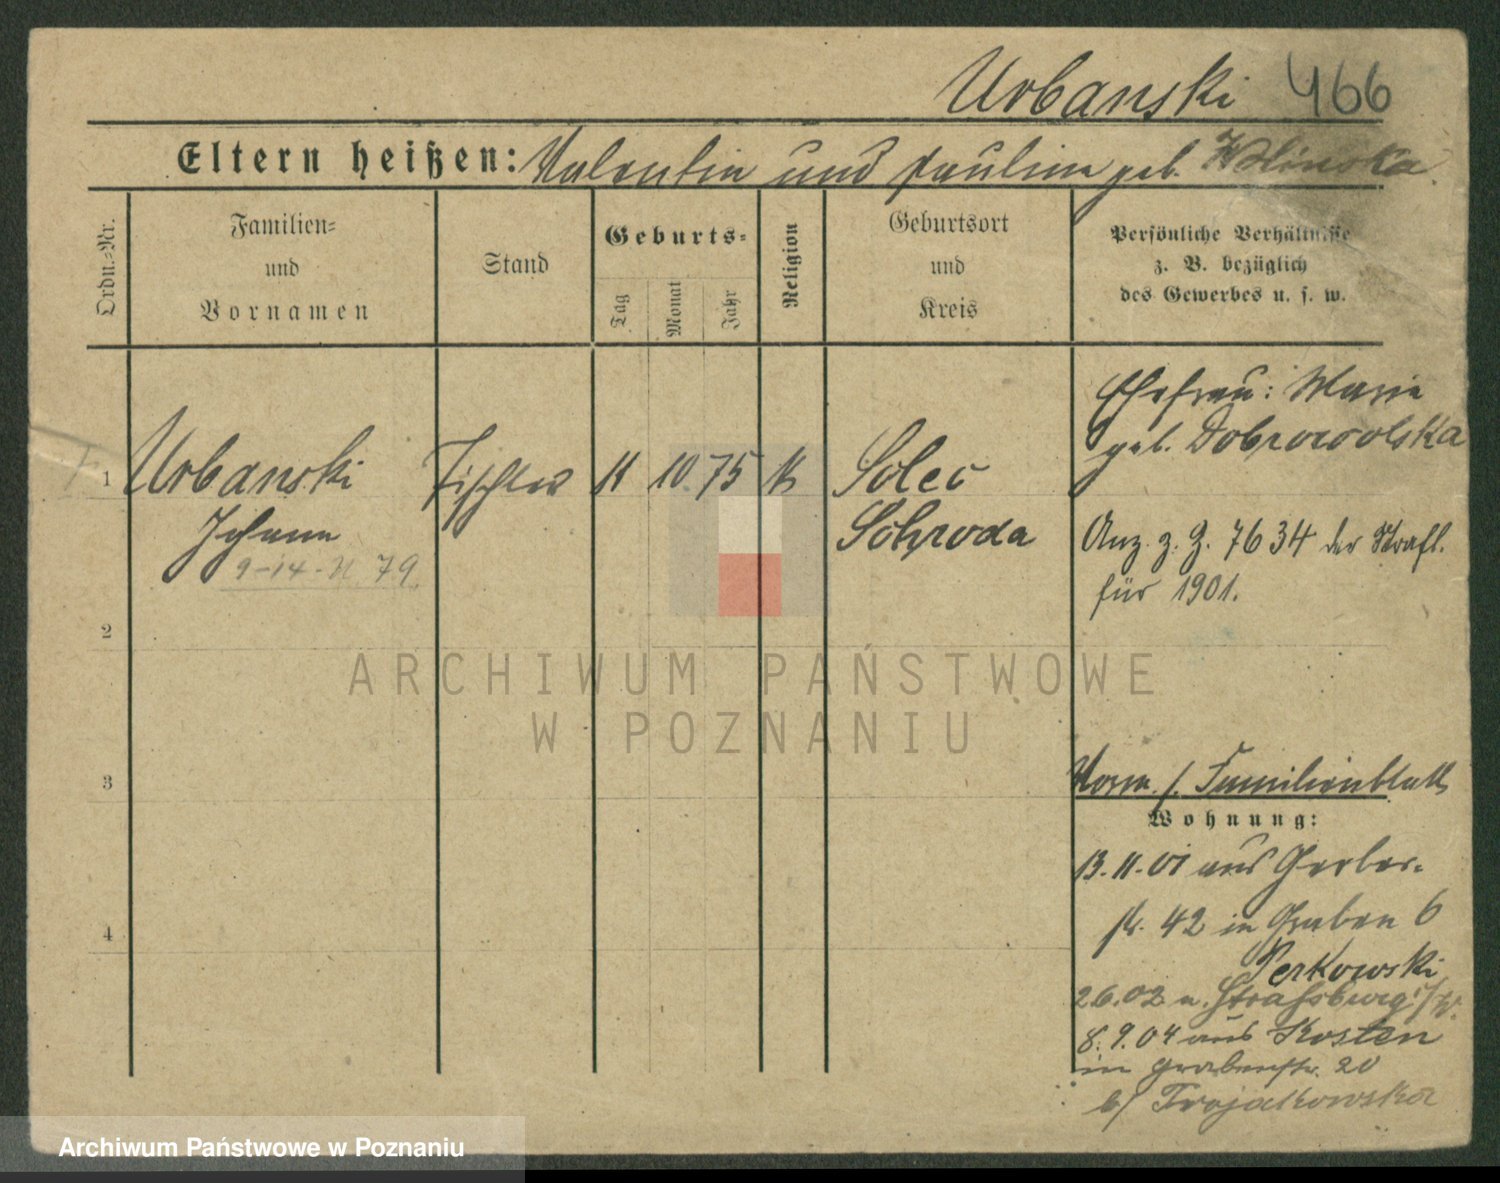 Urbanski 466
Eltern heißen: Valentin und Pauline geb. Wolinska
Ordn.-Nr.
Familien-
und
Vornamen
Stand
Geburts-
Tag
Monat
Jahr
Religion
Geburtsort
und
Kreis
Persönliche Verhältnisse
z. B. bezüglich
des Gewerbes u. s. w.
1 Urbanski Tischler 11 10. 75 k Solec
Johann Schroda
9-14- 79
Ehefrau: Marie
geb. Dobrowolska
Anz. z. Z. 7634 der Strafl.
für 1901.
2
3
4
Verm. s. Familienblatt
Wohnung:
13.11.01 aus Gerber-
str. 42 in Graben 6
Perkowski
2.6.02 n. Straßburg i/W.
8.9.04 aus Kosten
in Grabenstr. 20
b/ Trojakowska
ARCHIWUM PAŃSTWOWE
W POZNANIU
Archiwum Państwowe w Poznaniu